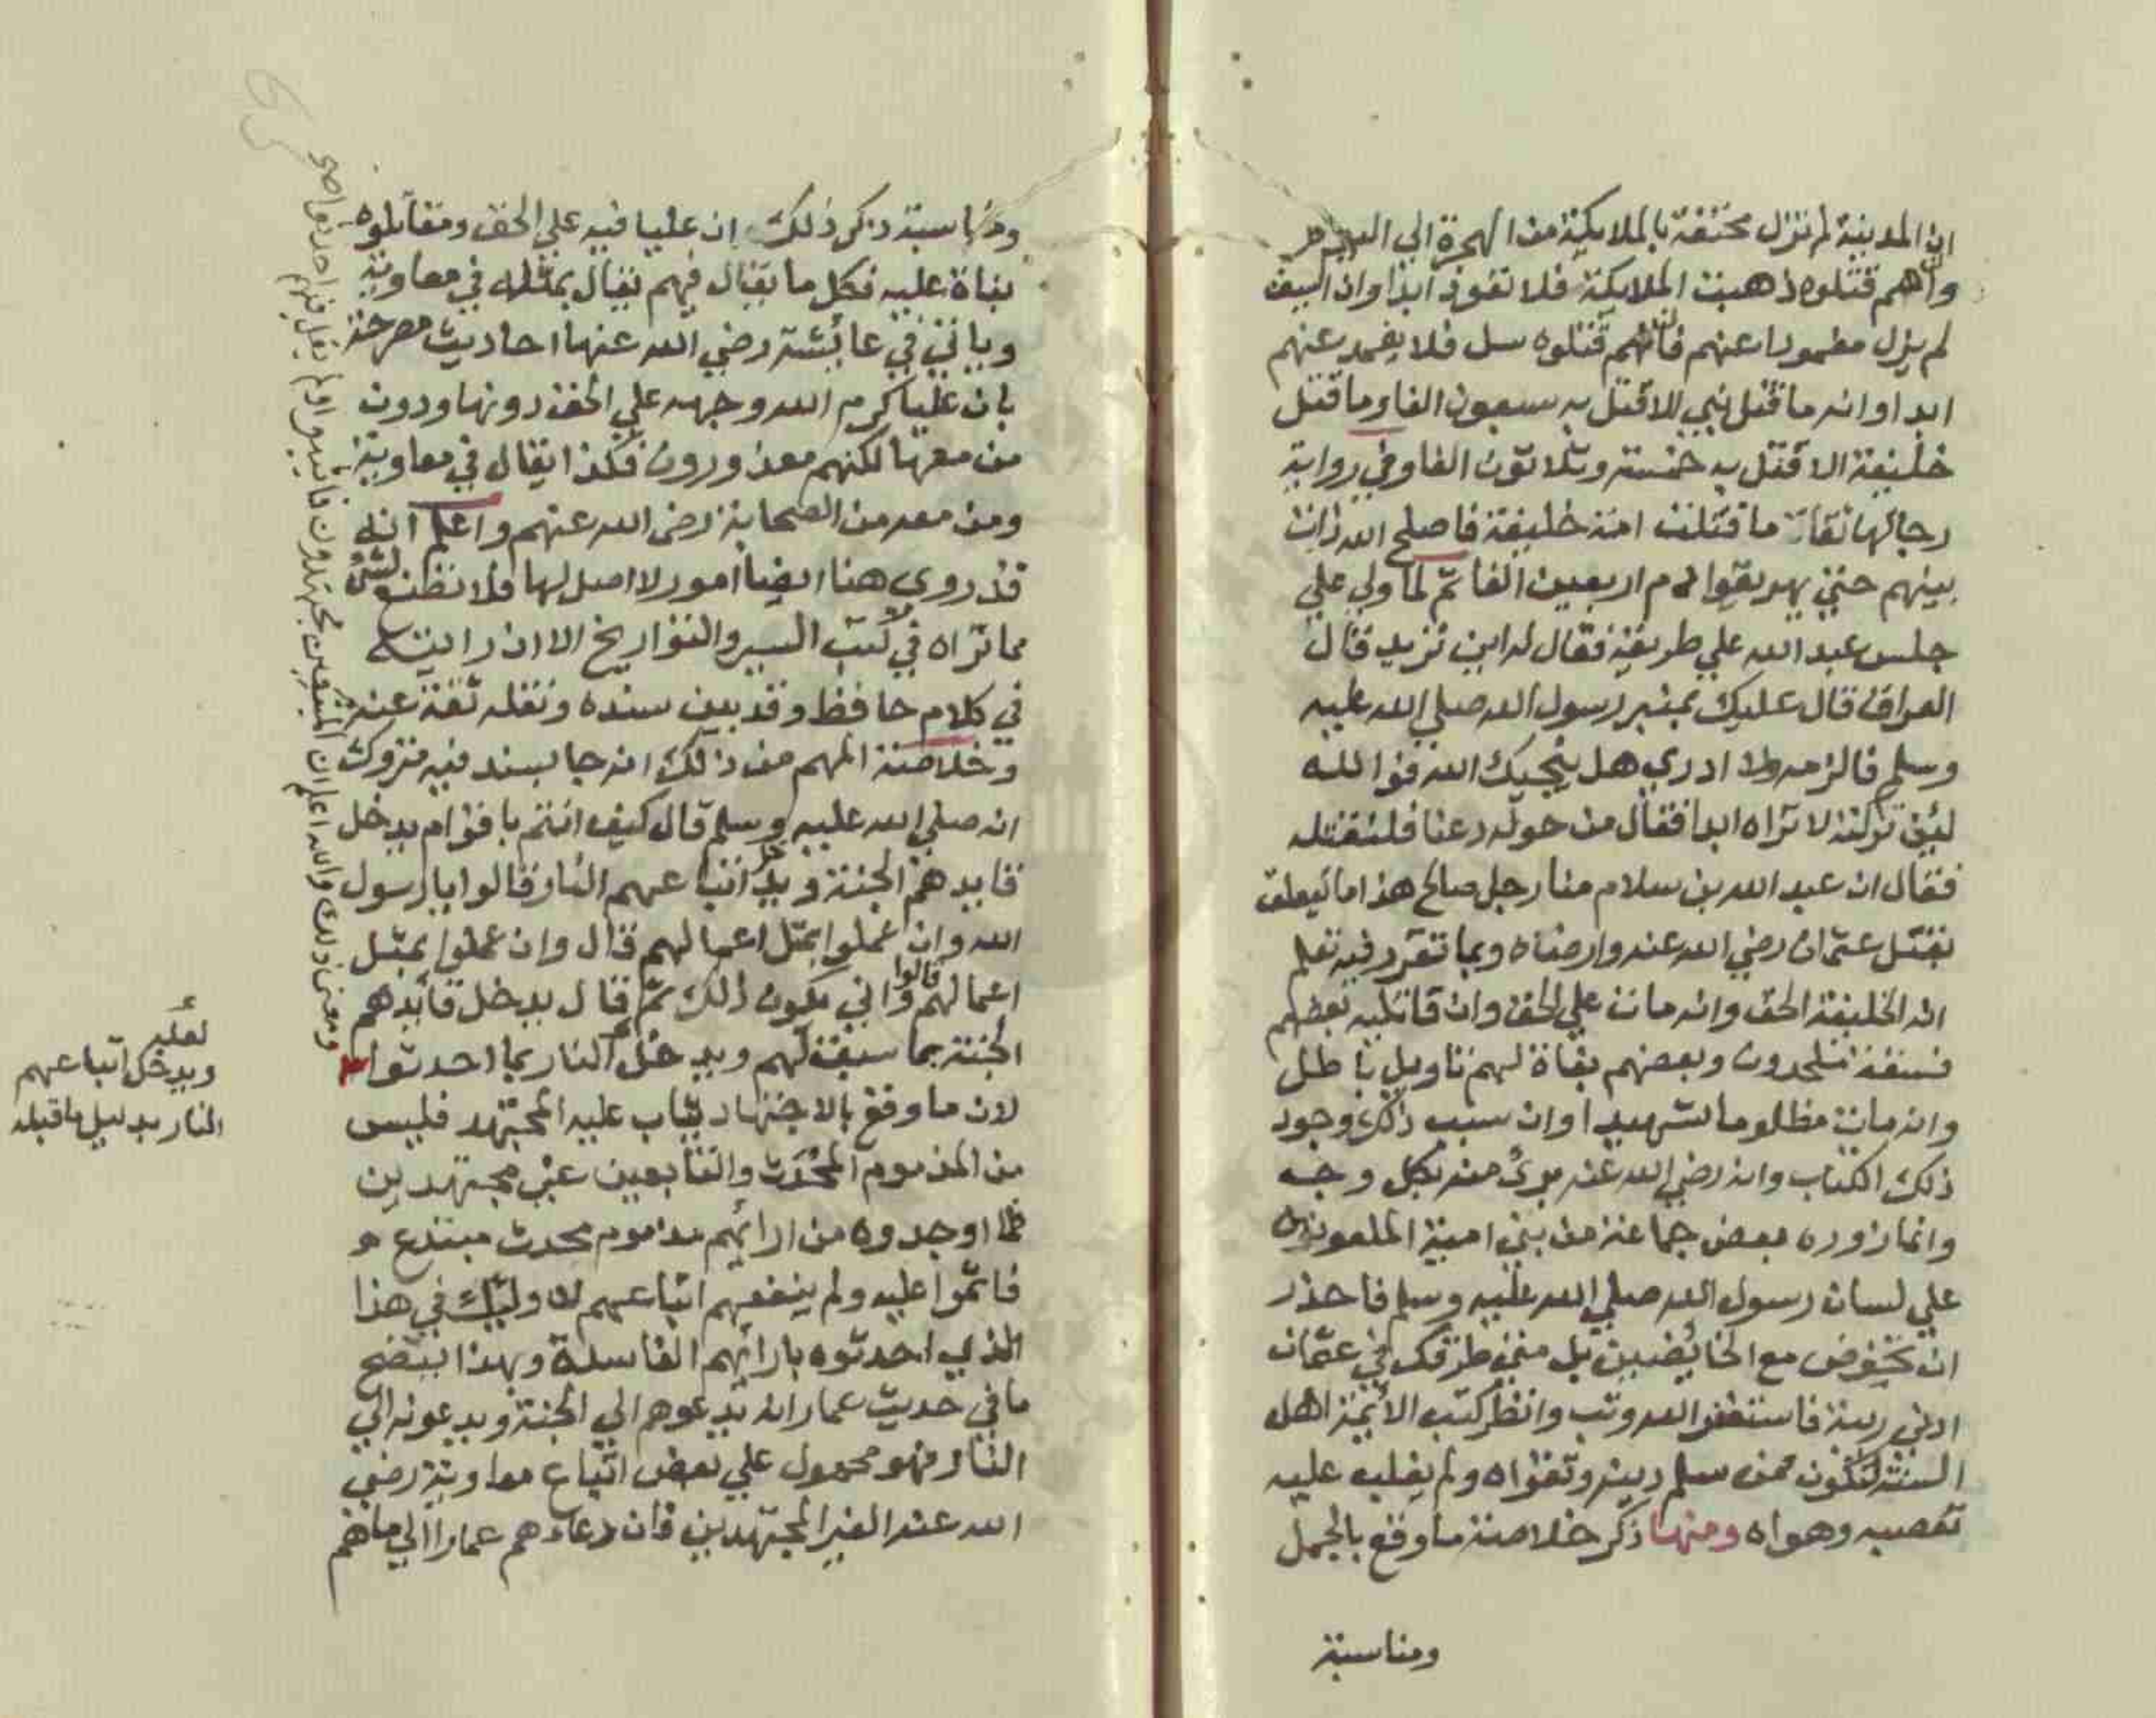 ان المدينة لم تزل محتفة بالملايكة من الهجرة الي اليوم
وان هم قتلوه ذهبت الملايكة فلا تعود ابدا وان السيف
لم يزل مغمودا عنهم فان هم قتلوه سل فلا يغمد عنهم
ابدا وانه ما قتل نبي الا قتل به سبعون الفا وما قتل
خليفة الا قتل به خمسة وثلاثون الفا وفي رواية
رجالها ثقات ما قتلت امة خليفة فاصلح الله ذات
بينهم حتي يهريقوا دم اربعين الفا ثم لما ولي علي
جلس عبد الله علي طريقه فقال له اين تريد قال
العراق قال عليك بمنبر رسول الله صلي الله عليه
وسلم فالزمه ولا ادري هل ينجيك الله فوالله
لئن تركته لا تراه ابدا فقال من حوله دعنا فلنقتله
فقال ان عبد الله بن سلام منا رجل صالح هذا ما يتعلق
بقتل عثمان رضي الله عنه وارضاه وبما تقرر فيه تعلم
انه الخليفة الحق وانه مات علي الحق وان قاتليه بعضهم
فسقة ملحدون وبعضهم بغاة لهم تاويل باطل
وانه مات مظلوما شهيدا وان سبب ذلك وجود
ذلك الكتاب وانه رضي الله عنه برئ منه بكل وجه
وانما زوره بعض جماعة من بني امية الملعونين
علي لسان رسول الله صلي الله عليه وسلم فاحذر
ان تخوض مع الخائضين بل متي طرقك في عثمان
ادني ريبة فاستغفر الله وتب وانظر كتب الأئمة اهل
السنة لتكون ممن سلم دينه وتقواه ولم يغلب عليه
تعصبه وهواه ومنها ذكر خلاصة ما وقع بالجمل
ومناسبة
ومناسبة ذكر ذلك ان عليا فيه علي الحق ومقاتلوه
بغاة عليه فكل ما يقال فيهم يقال بمثله في معاوية
وياتي في عائشة رضي الله عنها احاديث مصرحة
بان عليا كرم الله وجهه علي الحق دونها ودون
من معها لكنهم معذورون فكذا يقال في معاوية
ومن معه من الصحابة رضي الله عنهم واعلم انه
قد روي هنا ايضا امور لا اصل لها فلا تظن لشئ
مما تراه في كتب السير والتواريخ الا ان رايته
في كلام حافظ وقد بين سنده ونقله ثقة عنه
وخلاصة المهم من ذلك انه جا بسند فيه متروك
انه صلي الله عليه وسلم قال كيف انتم باقوام يدخل
قايدهم الجنة ويدخل اتباعهم النار قالوا يا رسول
الله وان عملوا بمثل اعمالهم قال وان عملوا بمثل
اعمالهم قالوا واني يكون ذلك ثم قال يدخل قائدهم
الجنة بما سبق لهم ويدخل النار بما احدثوا
لان ما وقع بالاجتهاد يثاب عليه المجتهد فليس
من المذموم المحدث والتابعين غير مجتهدين
فما اوجدوه من ارائهم مذموم محدث مبتدع
فاثموا عليه ولم ينفعهم اتباعهم لاولئك في هذا
الذي احدثوه بارائهم الفاسدة وبهذا يتضح
ما في حديث عمار انه يدعوهم الي الجنة ويدعونه الي
النار فهو محمول علي بعض اتباع معاوية رضي
الله عنه الغير المجتهدين فان دعاءهم عمارا الي ما هم
ومعني ذلك والله اعلم ان المتبوعين مجتهدون فاثيبوا ولم
لعله
ويدخل اتباعهم
النار بدليل ما قبله